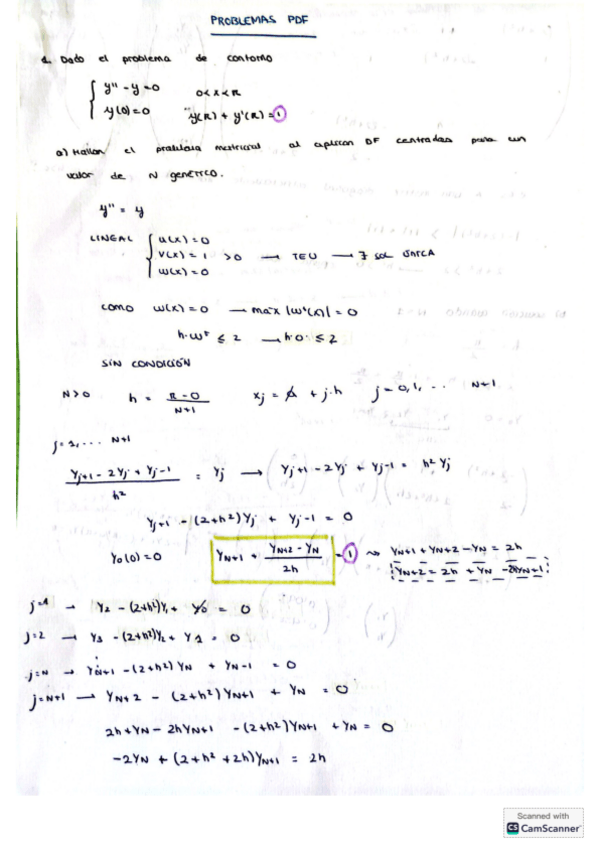 PROBLEMAS PDF
1. Dado el problema de contorno
y'' - y = 0 0 < x < R
y(0) = 0 y(R) + y'(R) = 1
a) Hallar el problema matricial al aplicar DF centradas para un
valor de N genérico.
y'' = y
LINEAL
u(x) = 0
v(x) = 1 > 0 → TEU → ∃ sol ÚNICA
w(x) = 0
como w(x) = 0 → max |w(x)| = 0
h·w* ≤ 2 → h·0 ≤ 2
SIN CONDICIÓN
N > 0 h = (R - 0)/(N+1) xj = + j·h j = 0, 1, ... N+1
j = 1, ... N+1
(Yj+1 - 2Yj + Yj-1)/h² = Yj → Yj+1 - 2Yj + Yj-1 = h² Yj
Yj+1 - (2+h²)Yj + Yj-1 = 0
Y0(0) = 0 YN+1 + (YN+2 - YN)/2h = 1 ⇝ YN+1 + YN+2 - YN = 2h
YN+2 = 2h + YN - 2hYN+1
j=1 → Y2 - (2+h²)Y1 + Y0 = 0
j=2 → Y3 - (2+h²)Y2 + Y1 = 0
j=N → YN+1 - (2+h²)YN + YN-1 = 0
j=N+1 → YN+2 - (2+h²)YN+1 + YN = 0
2h + YN - 2hYN+1 - (2+h²)YN+1 + YN = 0
-2YN + (2+h²+2h)YN+1 = 2h
Scanned with
CS CamScanner